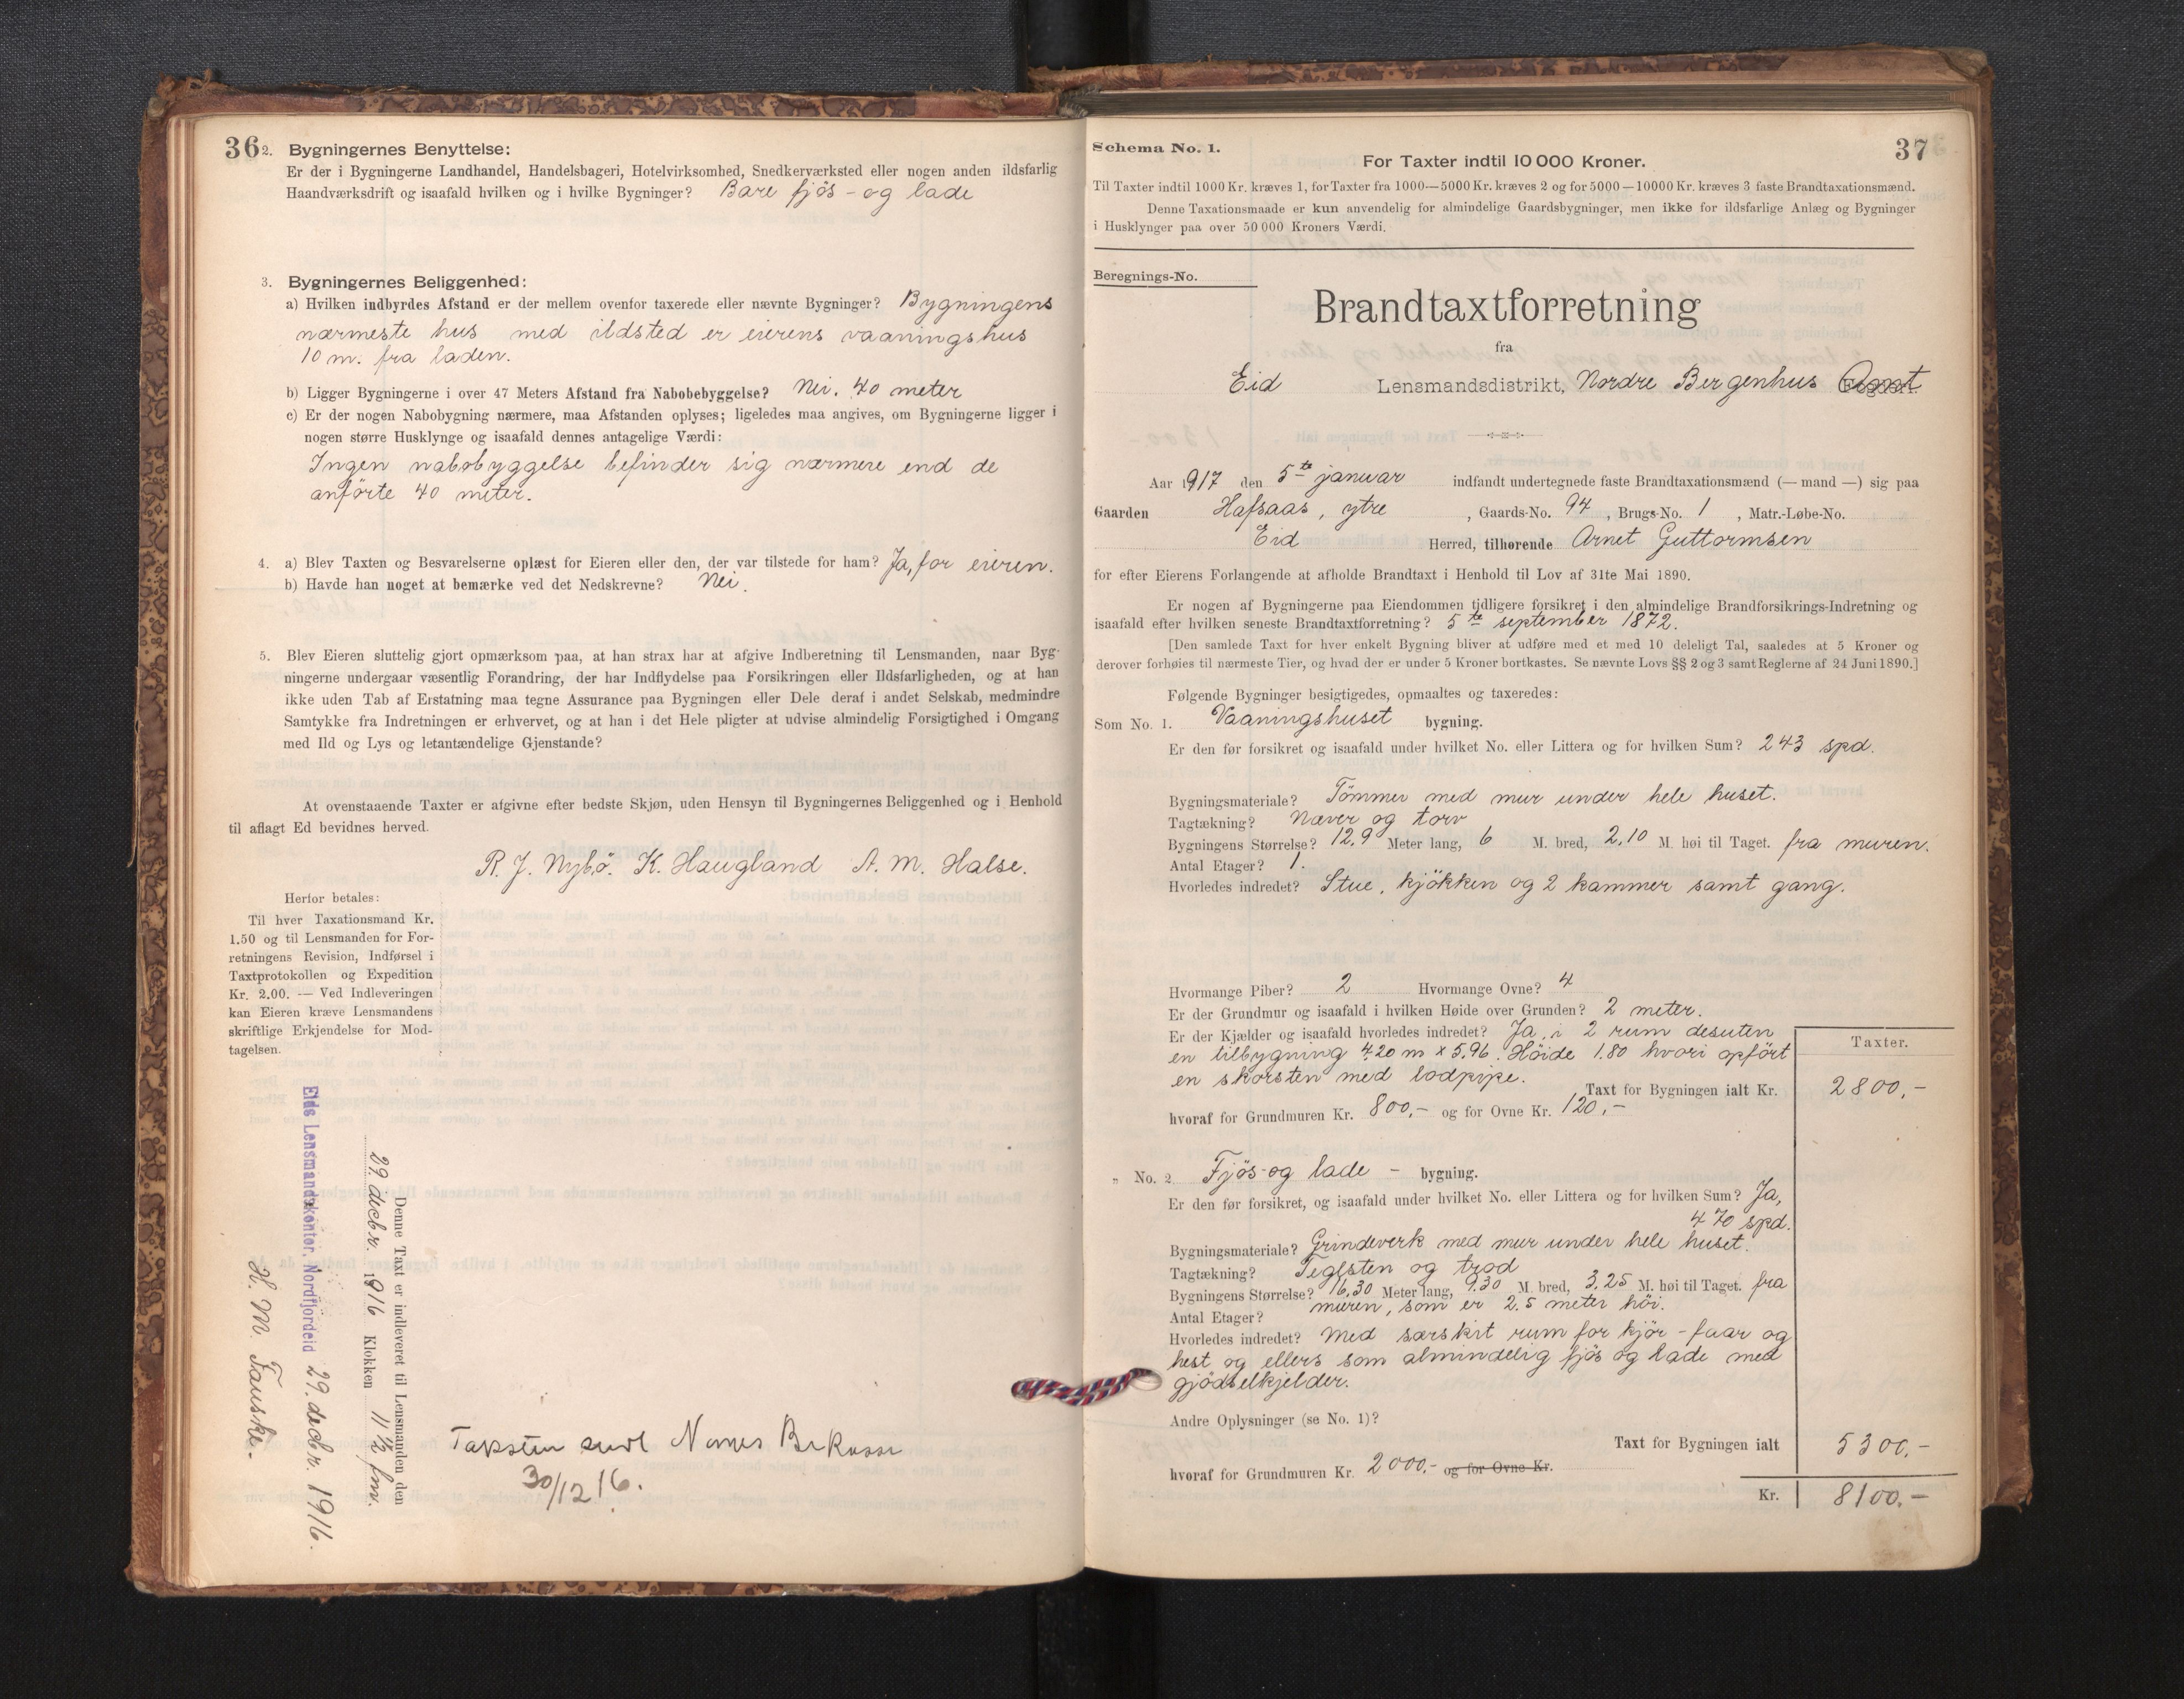 36
2. Bygningernes Benyttelse:
Er der i Bygningerne Landhandel, Handelsbageri, Hotelvirksomhed, Snedkerværksted eller nogen anden ildsfarlig
Haandværksdrift og isaafald hvilken og i hvilke Bygninger? Bare fjös - og lade
3. Bygningernes Beliggenhed:
a) Hvilken indbyrdes Afstand er der mellem ovenfor taxerede eller nævnte Bygninger? Bygningens
nærmeste hus med ildsted er eierens vaaningshus
10 m. fra laden.
b) Ligger Bygningerne i over 47 Meters Afstand fra Nabobebyggelse? Nei. 40 meter
c) Er der nogen Nabobygning nærmere, maa Afstanden oplyses; ligeledes maa angives, om Bygningerne ligger i
nogen større Husklynge og isaafald dennes antagelige Værdi:
Ingen nabobyggelse befinder sig nærmere end de
anførte 40 meter.
4. a) Blev Taxten og Besvarelserne oplæst for Eieren eller den, der var tilstede for ham? Ja, for eieren.
b) Havde han noget at bemærke ved det Nedskrevne? Nei.
5. Blev Eieren sluttelig gjort opmærksom paa, at han strax har at afgive Indberetning til Lensmanden, naar Byg-
ningerne undergaar væsentlig Forandring, der har Indflydelse paa Forsikringen eller Ildsfarligheden, og at han
ikke uden Tab af Erstatning maa tegne Assurance paa Bygningen eller Dele deraf i andet Selskab, medmindre
Samtykke fra Indretningen er erhvervet, og at han i det Hele pligter at udvise almindelig Forsigtighed i Omgang
med Ild og Lys og letantændelige Gjenstande?
At ovenstaaende Taxter er afgivne efter bedste Skjøn, uden Hensyn til Bygningernes Beliggenhed og i Henhold
til aflagt Ed bevidnes herved.
R. J. Nybö. K. Haugland A. M. Halse.
Herfor betales:
Til hver Taxationsmand Kr.
1.50 og til Lensmanden for For-
retningens Revision, Indførsel i
Taxtprotokollen og Expedition
Kr. 2.00. — Ved Indleveringen
kan Eieren kræve Lensmandens
skriftlige Erkjendelse for Mod-
tagelsen.
Denne Taxt er indleveret til Lensmanden den
29. decbr. 1916 Klokken 11 1/2 fm.
Eids Lensmandskontor, Nordfjordeid 29. decbr. 1916.
H. M. Fauske.
Taksten sendt Nores Brkasse
30/12 16.
37
Schema No. 1.
For Taxter indtil 10 000 Kroner.
Til Taxter indtil 1000 Kr. kræves 1, for Taxter fra 1000—5000 Kr. kræves 2 og for 5000—10000 Kr. kræves 3 faste Brandtaxationsmænd.
Denne Taxationsmaade er kun anvendelig for almindelige Gaardsbygninger, men ikke for ildsfarlige Anlæg og Bygninger
i Husklynger paa over 50 000 Kroners Værdi.
Beregnings-No.
Brandtaxtforretning
fra
Eid Lensmandsdistrikt, Nordre Bergenhus Amt Fogderi.
Aar 1917 den 5te januar indfandt undertegnede faste Brandtaxationsmænd (— mand —) sig paa
Gaarden Hafsaas, ytre, Gaards-No. 94, Brugs-No. 1, Matr.-Løbe-No.
Eid Herred, tilhørende Arnet Guttormsen
for efter Eierens Forlangende at afholde Brandtaxt i Henhold til Lov af 31te Mai 1890.
Er nogen af Bygningerne paa Eiendommen tidligere forsikret i den almindelige Brandforsikrings-Indretning og
isaafald efter hvilken seneste Brandtaxtforretning? 5te september 1872.
[Den samlede Taxt for hver enkelt Bygning bliver at udføre med et med 10 deleligt Tal, saaledes at 5 Kroner og
derover forhøies til nærmeste Tier, og hvad der er under 5 Kroner bortkastes. Se nævnte Lovs §§ 2 og 3 samt Reglerne af 24 Juni 1890.]
Følgende Bygninger besigtigedes, opmaaltes og taxeredes:
Som No. 1. Vaaningshuset bygning.
Er den før forsikret og isaafald under hvilket No. eller Littera og for hvilken Sum? 243 spd.
Bygningsmateriale? Tömmer med mur under hele huset.
Tagtækning? Næver og torv
Bygningens Størrelse? 12,9 Meter lang, 6 M. bred, 2,10 M. høi til Taget. fra muren.
Antal Etager? 1.
Hvorledes indredet? Stue, kjökken og 2 kammer samt gang.
Hvormange Piber? 2 Hvormange Ovne? 4
Er der Grundmur og isaafald i hvilken Høide over Grunden? 2 meter.
Er der Kjælder og isaafald hvorledes indredet? Ja, i 2 rum desuten
en tilbygning 4,20 m x 5,96. Höide 1,80 hvori opført
en skorsten med lodpipe.
Taxter.
Taxt for Bygningen ialt Kr. 2800,-
hvoraf for Grundmuren Kr. 800,- og for Ovne Kr. 120,-
„ No. 2 Fjös- og lade - bygning.
Er den før forsikret, og isaafald under hvilket No. eller Littera og for hvilken Sum? Ja,
470 spd.
Bygningsmateriale? Grindverk med mur under hele huset.
Tagtækning? Teglsten og trod
Bygningens Størrelse? 16,30 Meter lang, 9,30 M. bred, 3,25 M. høi til Taget. fra
muren, som er 2,5 meter höi.
Antal Etager?
Hvorledes indredet? Med særskit rum for kjör - faar og
hest og ellers som almindelig fjös og lade med
gjödselkjelder.
Andre Oplysninger (se No. 1)?
Taxt for Bygningen ialt 5300,-
hvoraf for Grundmuren Kr. 2000,- og for Ovne Kr.
Kr. 8100,-